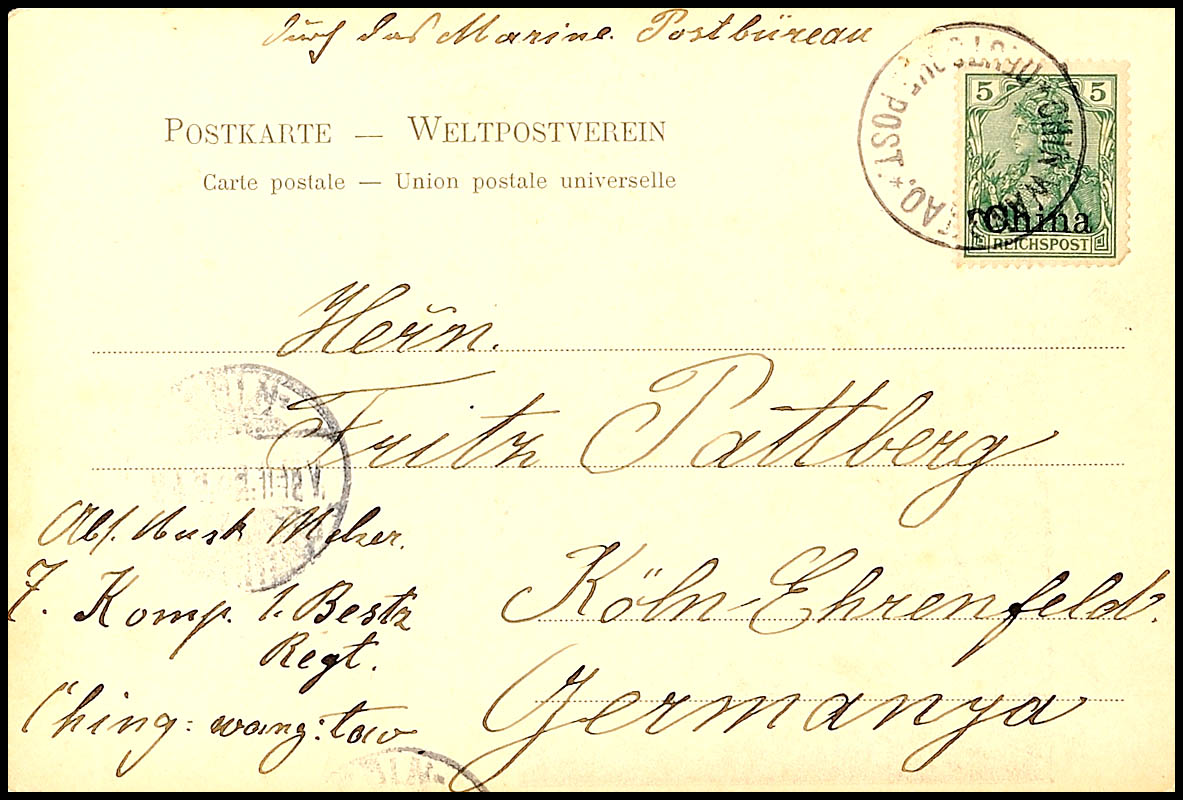 durch das Marine Postbüreau
POSTKARTE — WELTPOSTVEREIN
Carte postale — Union postale universelle
5 5
China
REICHSPOST
DEUTSCHE POST
Herrn.
Fritz Pattberg
Köln-Ehrenfeld.
Germanya
Abs. Musk
7. Komp. 1. Bestz
Regt.
Ching: wang: tao